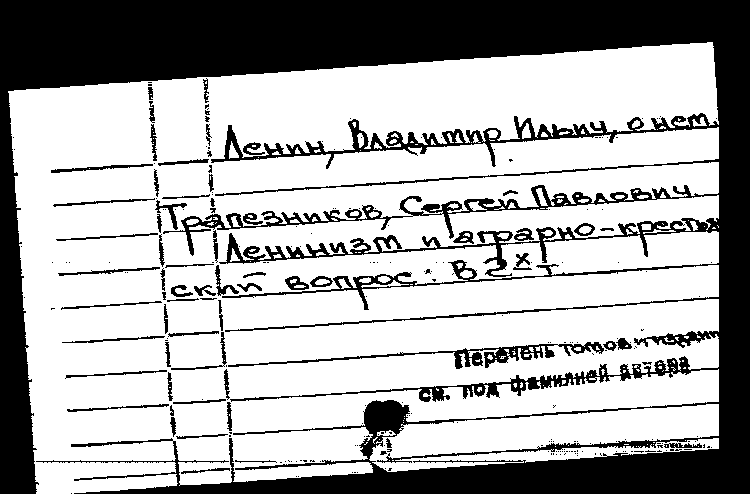 Ленин, Владимир Ильич, о нем.
Трапезников, Сергей Павлович.
Ленинизм и аграрно-крестья
ский вопрос: В 2х т.
Перечень томов и издани
см. под фамилией автора